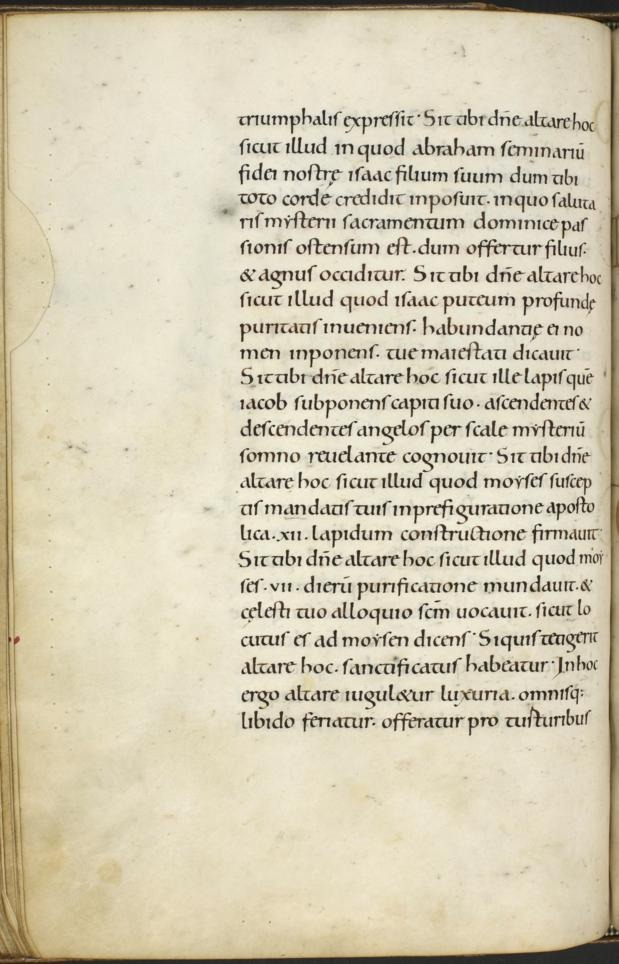 triumphalis expressit· Sit tibi dn̄e altare hoc
sicut illud in quod abraham seminariū
fidei nostrę isaac filium suum dum tibi
toto corde credidit inposuit. in quo saluta
ris mẏsterii sacramentum dominice pas
sionis ostensum est. dum offertur filius.
& agnus occiditur. Sit tibi dn̄e altare hoc
sicut illud quod isaac puteum profundę
puritatis inueniens. habundantię ei no
men inponens. tue maiestati dicauit·
Sit tibi dn̄e altare hoc sicut ille lapis que
iacob subponens capiti suo. ascendentes &
descendentes angelos per scale mẏsteriū
somno reuelante cognouit· Sit tibi dn̄e
altare hoc sicut illud quod moẏses suscep
tis mandatis tuis in prefiguratione aposto
lica .xii. lapidum constructione firmauit·
Sit tibi dn̄e altare hoc sicut illud quod moẏ
ses .vii. dierū purificatione mundauit. &
cęlesti tuo alloquio scm̄ uocauit. sicut lo
cutus es ad moẏsen dicens· Si quis tetigerit
altare hoc. sanctificatus habeatur· In hoc
ergo altare iugul&ur luxuria. omnisq:
libido feriatur. offeratur pro tusturibus